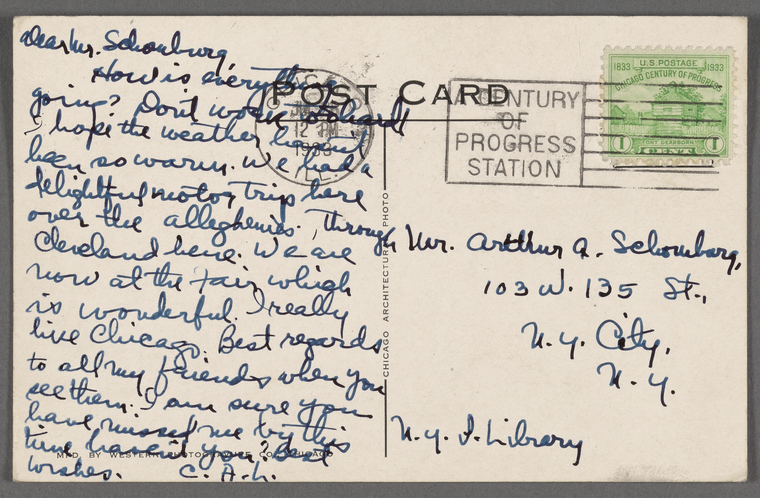 Dear Mr. Schomburg,
How is everything
going? Don't work so hard!
I hope the weather hasn't
been so warm. We had a
delightful motor trip here
over the alleghenies, through
Cleveland here. We are
now at the Fair which
is wonderful. I really
like Chicago. Best regards
to all my friends when you
see them. I am sure you
have missed me by this
time haven't you? Best
wishes. C. A. L.
POST CARD
CHICAGO
12 PM
1933
ILL.
A CENTURY
OF
PROGRESS
STATION
1833 U.S. POSTAGE 1933
CHICAGO CENTURY OF PROGRESS
FORT DEARBORN
1 CENT 1
CHICAGO ARCHITECTURAL PHOTO
Mr. Arthur A. Schomburg,
103 W. 135 St.,
N. Y. City,
N. Y.
N. Y. P. Library
MFD. BY WESTERN PHOTOGRAPHIC CO. CHICAGO